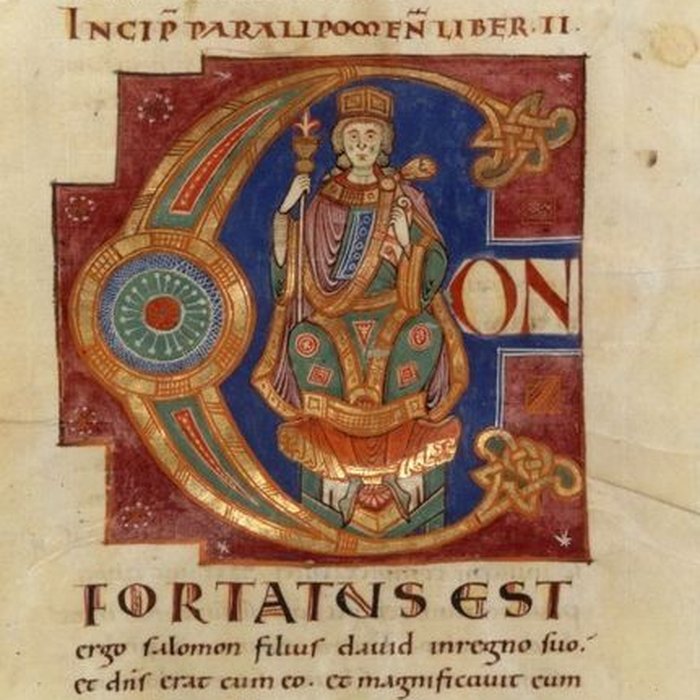 INCIP̄ PARALIPOMEN̄ LIBER · II ·
CON
FORTATUS EST
ergo salomon filius dauid inregno suo.
et dn̄s erat cum eo. et magnificauit eum